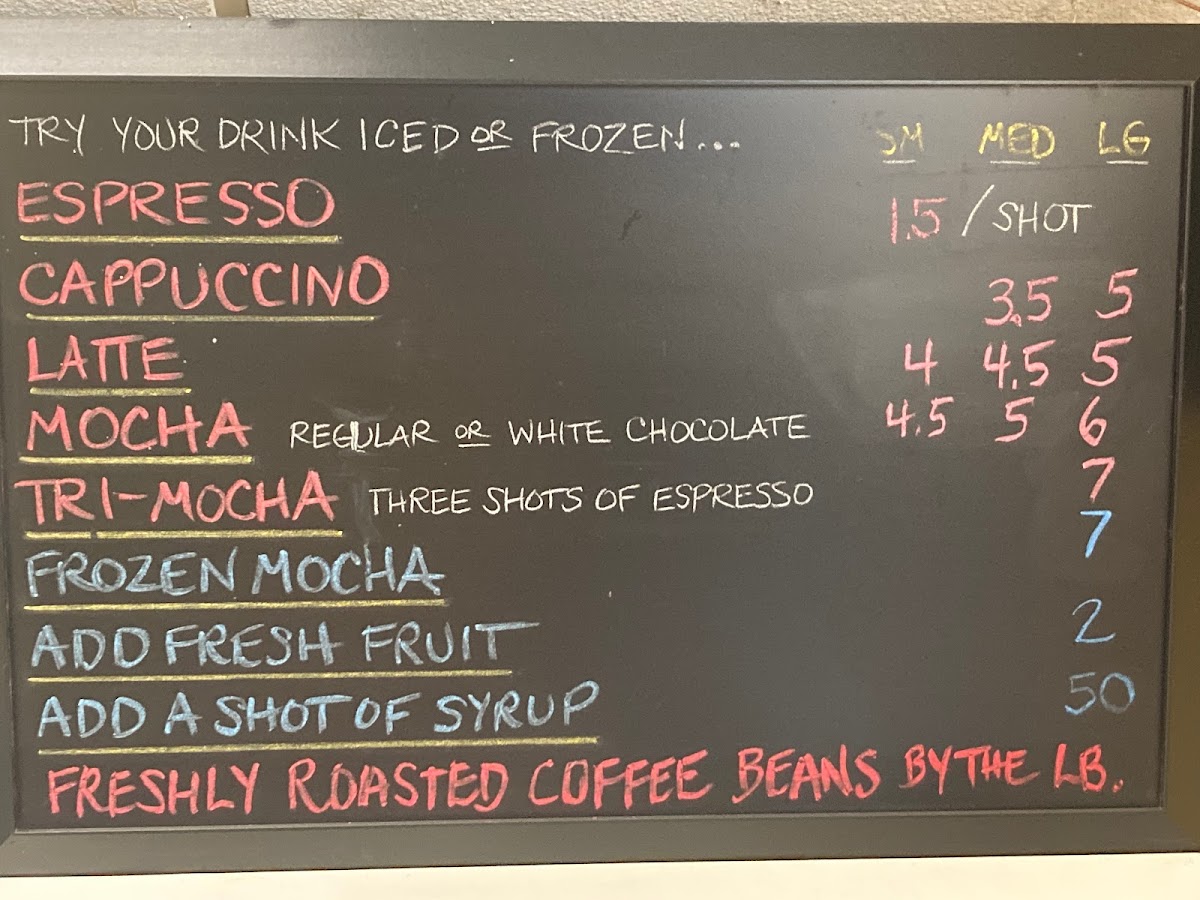 TRY YOUR DRINK ICED OR FROZEN... SM MED LG
ESPRESSO 1.5 / SHOT
CAPPUCCINO 3.5 5
LATTE 4 4.5 5
MOCHA REGULAR OR WHITE CHOCOLATE 4.5 5 6
TRI-MOCHA THREE SHOTS OF ESPRESSO 7
FROZEN MOCHA 7
ADD FRESH FRUIT 2
ADD A SHOT OF SYRUP 50
FRESHLY ROASTED COFFEE BEANS BY THE LB.